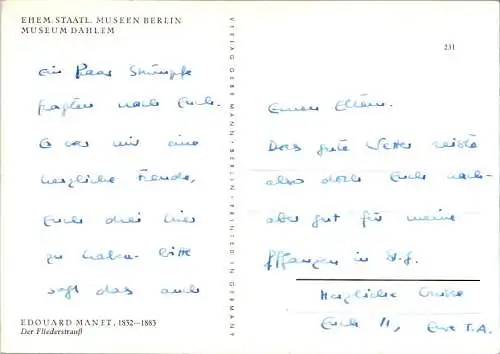 EHEM. STAATL. MUSEEN BERLIN
MUSEUM DAHLEM
Ein Paar Strümpfe
fragten nach Euch.
Es war mir eine
herzliche Freude,
Euch drei hier
zu haben. bitte
sagt das auch
EDOUARD MANET, 1832—1883
Der Fliederstrauß
VERLAG GEBR. MANN · BERLIN · PRINTED IN GERMANY
231
Euren Eltern.
Das gute Wetter reiste
also doch Euch nach-
aber gut für meine
Pflanzen in
Herzliche Grüsse
Euch !!, Eure T.A.